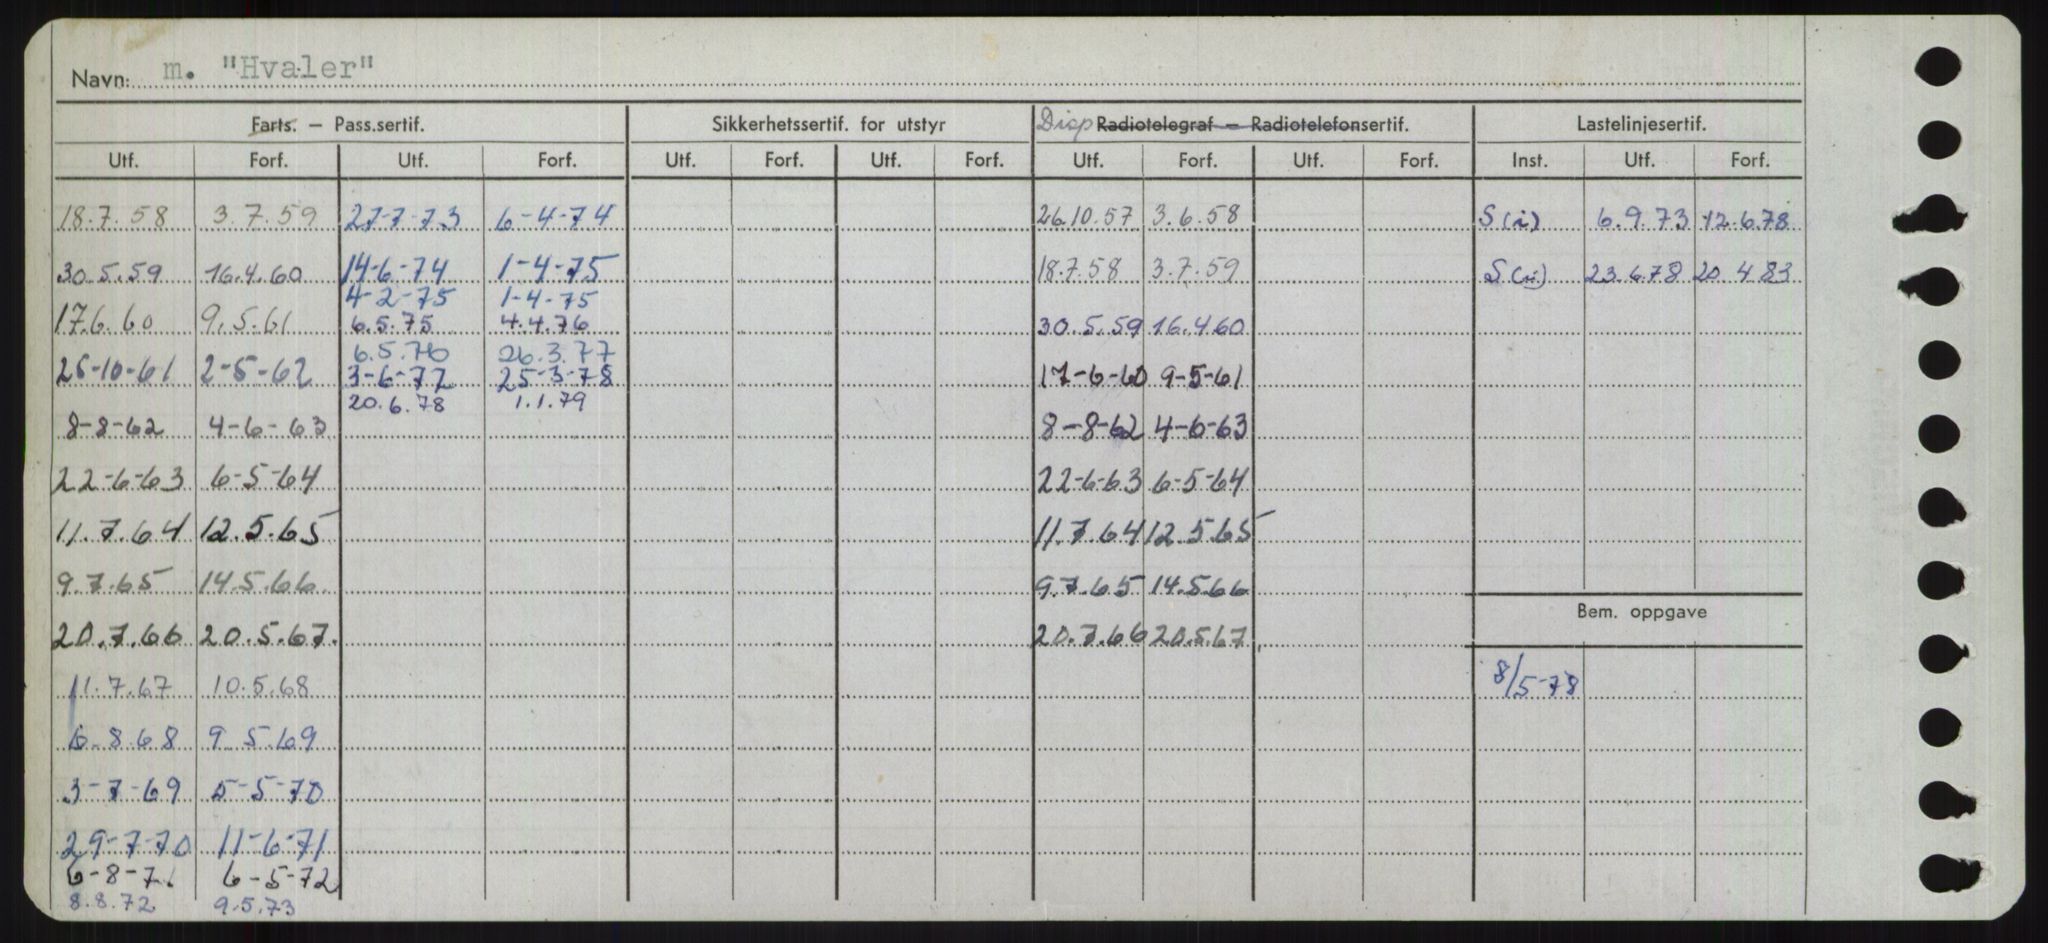 Navn: m. "Hvaler"
Farts. – Pass.sertif. Sikkerhetssertif. for utstyr Disp Radiotelegraf – Radiotelefonsertif. Lastelinjesertif.
Utf. Forf. Utf. Forf. Utf. Forf. Utf. Forf. Utf. Forf. Utf. Forf. Inst. Utf. Forf.
18.7.58 3.7.59 27-7-73 6-4-74 26.10.57 3.6.58 S(i) 6.9.73 12.6.78
30.5.59 16.4.60 14-6-74 1-4-75 18.7.58 3.7.59 S(i) 23.6.78 20.4.83
4-2-75 1-4-75
17.6.60 9.5.61 6.5.75 4.4.76 30.5.59 16.4.60
6.5.76 26.3.77
26-10-61 2-5-62 3-6-77 25-3-78 17-6-60 9-5-61
20.6.78 1.1.79
8-8-62 4-6-63 8-8-62 4-6-63
22-6-63 6-5-64 22-6-63 6-5-64
11.7.64 12.5.65 11.7.64 12.5.65
9.7.65 14.5.66. 9.7.65 14.5.66
20.7.66 20.5.67. 20.7.66 20.5.67
Bem. oppgave
11.7.67 10.5.68 8/5-78
6.8.68 9.5.69
3-7-69 5-5-70
29-7-70 11-6-71
6-8-71 6-5-72
8.8.72 9.5.73